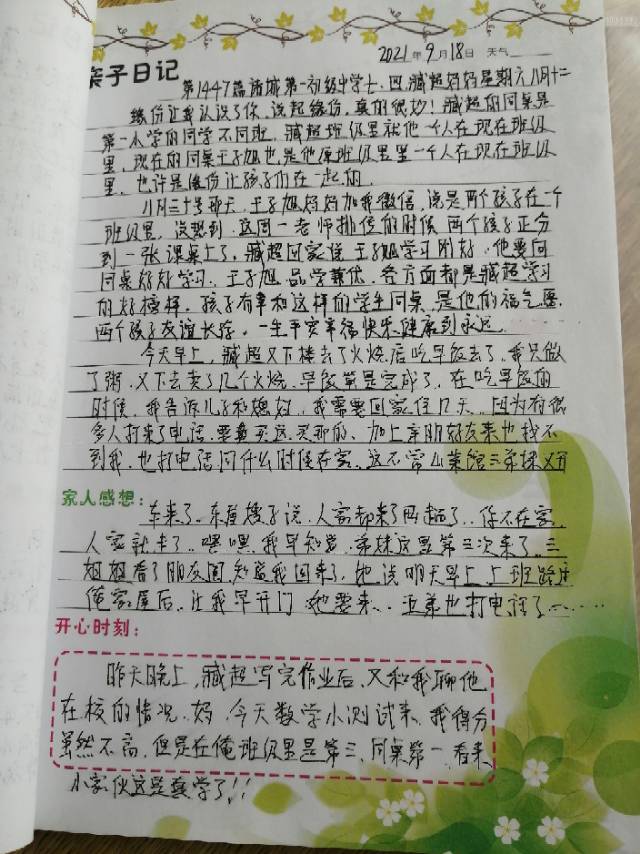 亲子日记
2021年9月18日 天气
第1447篇诸城第一初级中学七.四.臧超妈妈星期六八月十二
缘份让我认识了你.说起缘份.真的很妙!臧超的同桌是
第一小学的同学不同班.臧超班级里就他一个人在现在班级
里.现在的同桌王子旭也是他原班级里里一个人在现在班级
里.也许是缘份让孩子们在一起的.
八月三十号那天.王子旭妈妈加我微信.说是两个孩子在一个
班级里.没想到.这周一老师排位的时候两个孩子正分
到一张课桌上了.臧超回家说王子旭学习刚好.他要向
同桌好好学习.王子旭品学兼优.各方面都是臧超学习
的好榜样.孩子有幸和这样的学生同桌.是他的福气愿.
两个孩子友谊长存.一生平安幸福快乐健康到永远.
今天早上,臧超又下楼去了火烧店吃早饭去了.我只做
了粥.又下去卖了几个火烧.早饭算是完成了.在吃早饭的
时候.我告诉儿子和媳妇.我需要回家住几天.因为有很
多人打来了电话.要着买这.买那的.加上亲朋好友来也找不
到我.也打电话问什么时候在家.这不常山菜馆三弟妹又开
家人感想:
车来了.东屋嫂子说.人家都来了两趟了.你不在家.
人家就走了.嘿嘿.我早知道.弟妹这里第三次来了.三
姐姐看了朋友圈.知道我回来了.她说明天早上上班路过
俺家屋后.让我早开门她要来..五弟也打电话了......
开心时刻:
昨天晚上,臧超写完作业后.又和我聊他
在校的情况.妈.今天数学小测试来.我得分
虽然不高.但是在俺班级里是第三.同桌第一.看来
小家伙这是真学了!!